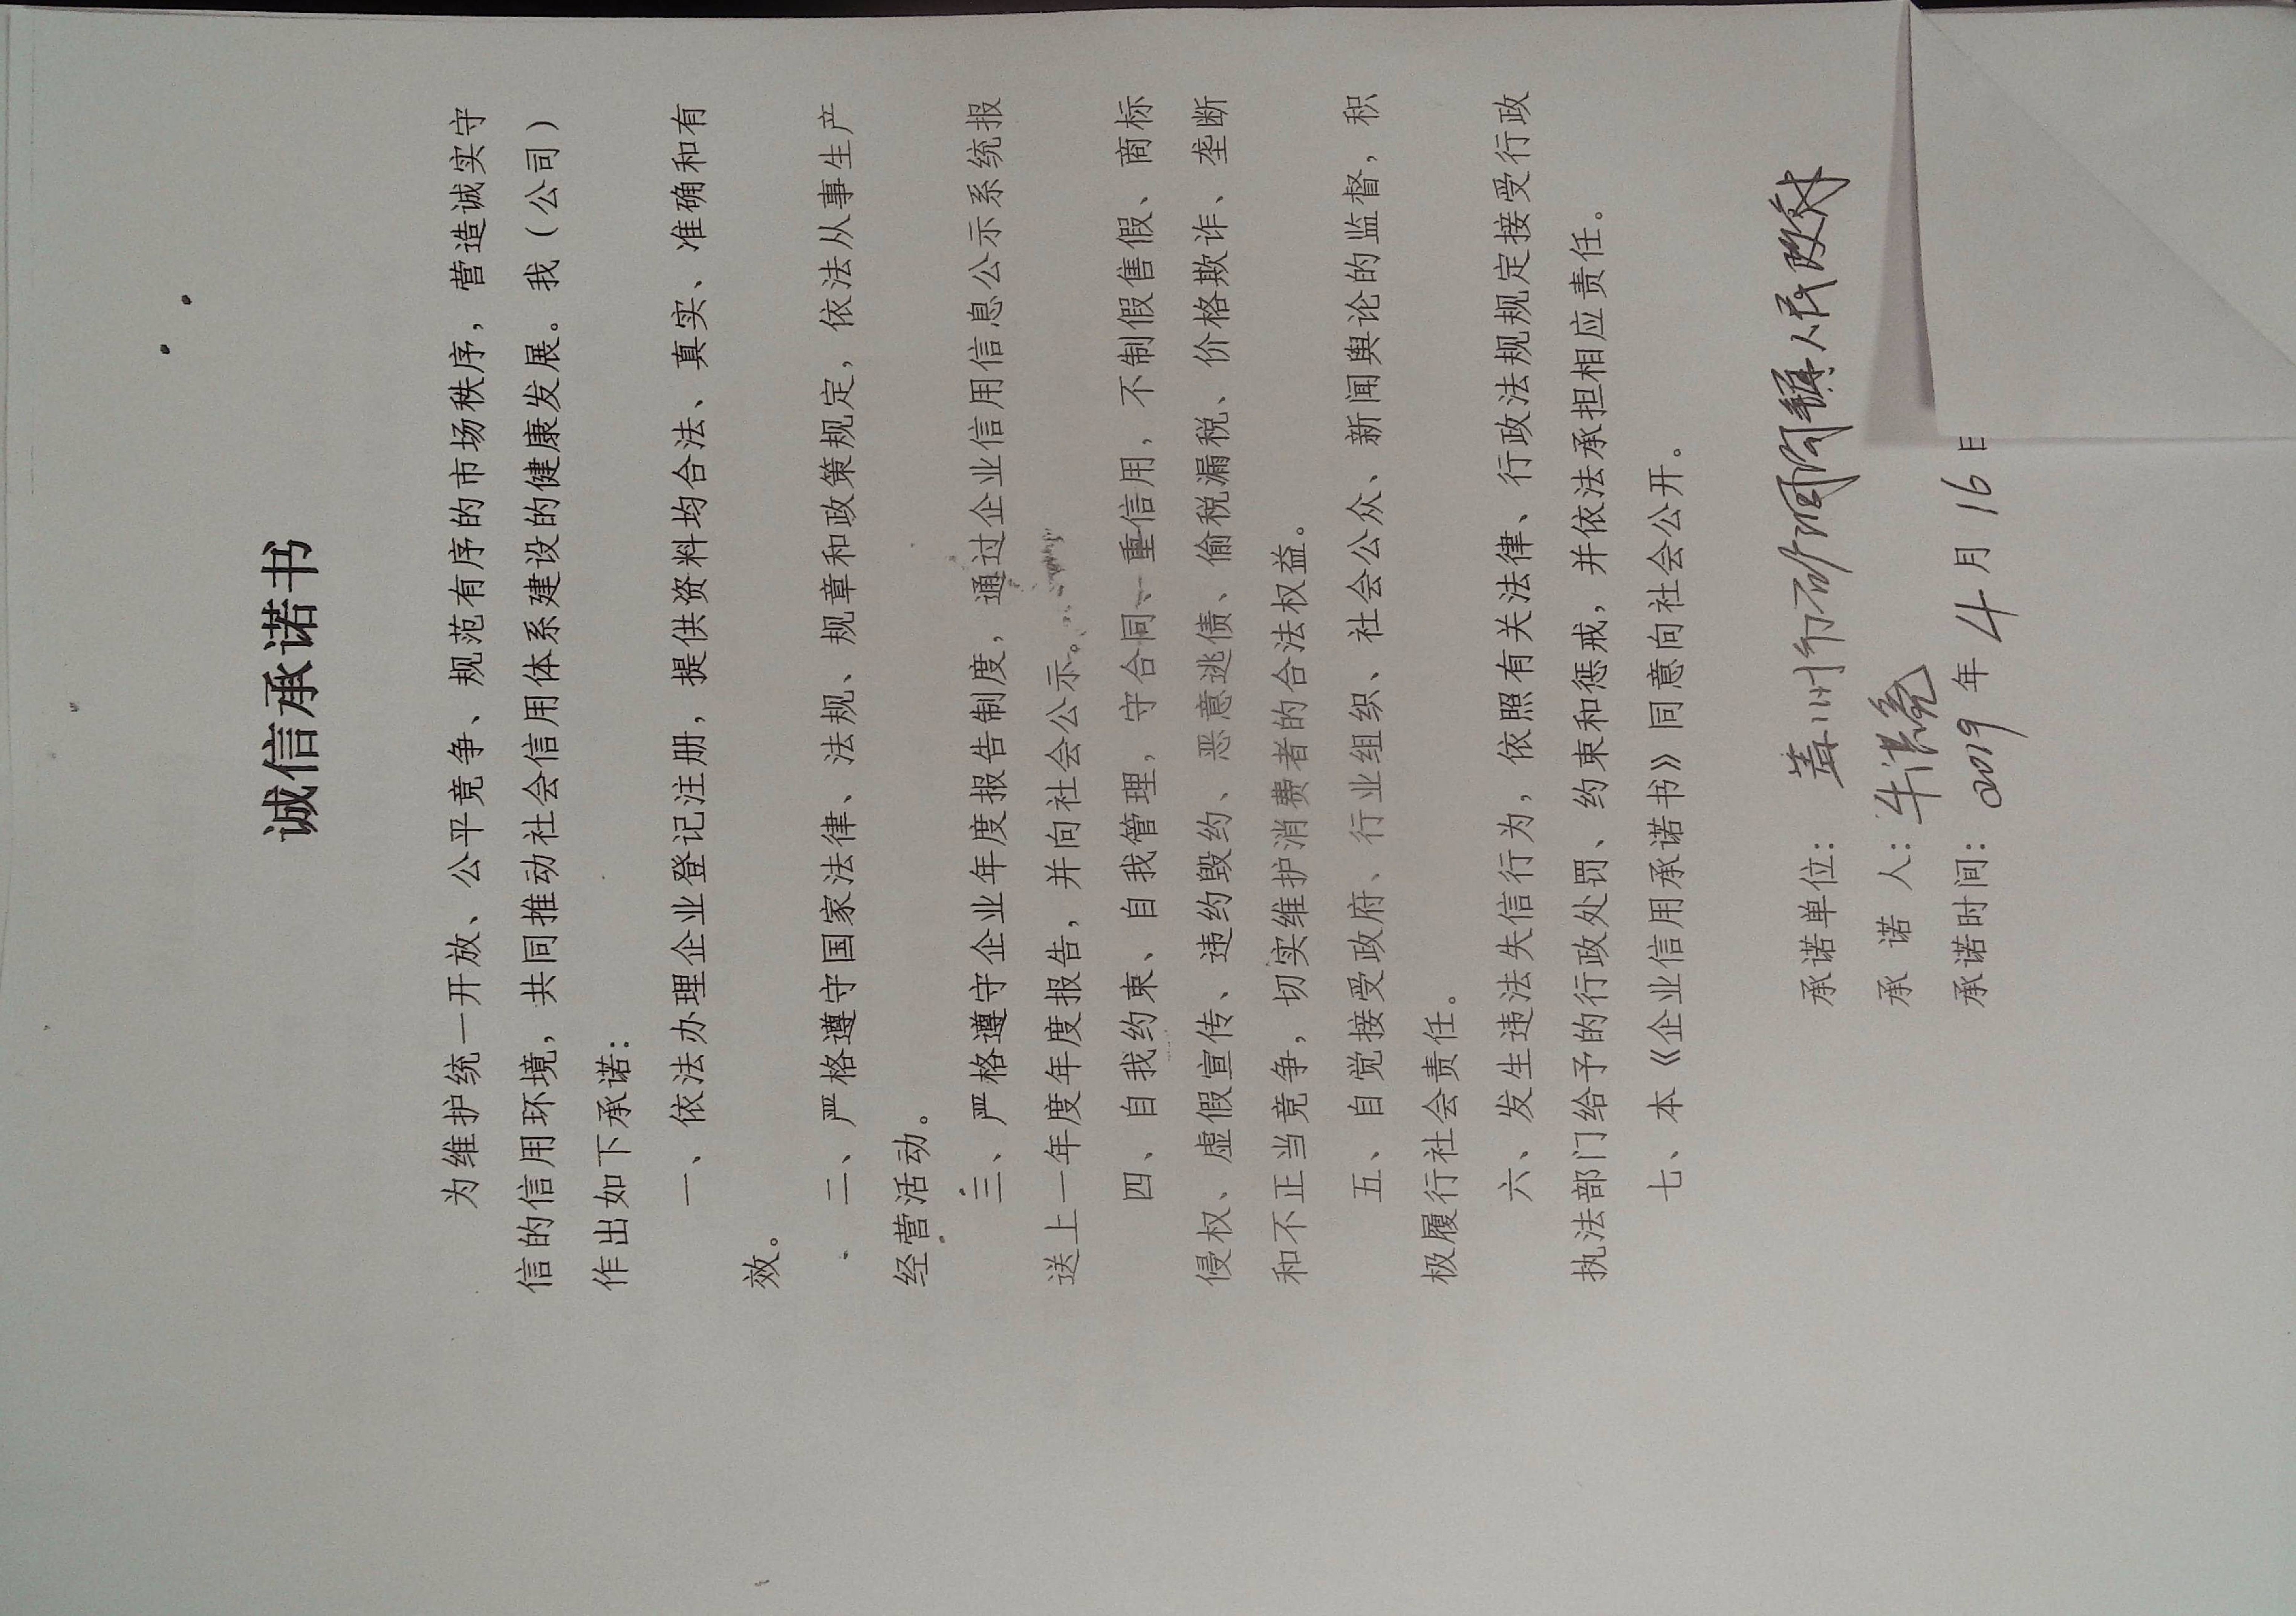 诚信承诺书
为维护统一开放、公平竞争、规范有序的市场秩序，营造诚实守
信的信用环境，共同推动社会信用体系建设的健康发展。我（公司）
作出如下承诺：
一、依法办理企业登记注册，提供资料均合法、真实、准确和有
效。
二、严格遵守国家法律、法规、规章和政策规定，依法从事生产
经营活动。
三、严格遵守企业年度报告制度，通过企业信用信息公示系统报
送上一年度年度报告，并向社会公示。
四、自我约束、自我管理，守合同、重信用，不制假售假、商标
侵权、虚假宣传、违约毁约、恶意逃债、偷税漏税、价格欺诈、垄断
和不正当竞争，切实维护消费者的合法权益。
五、自觉接受政府、行业组织、社会公众、新闻舆论的监督，积
极履行社会责任。
六、发生违法失信行为，依照有关法律、行政法规规定接受行政
执法部门给予的行政处罚、约束和惩戒，并依法承担相应责任。
七、本《企业信用承诺书》同意向社会公开。
承诺单位：盖州市矿洞沟镇人民政府
承 诺 人：牛
承诺时间：2019 年 4 月 16 日